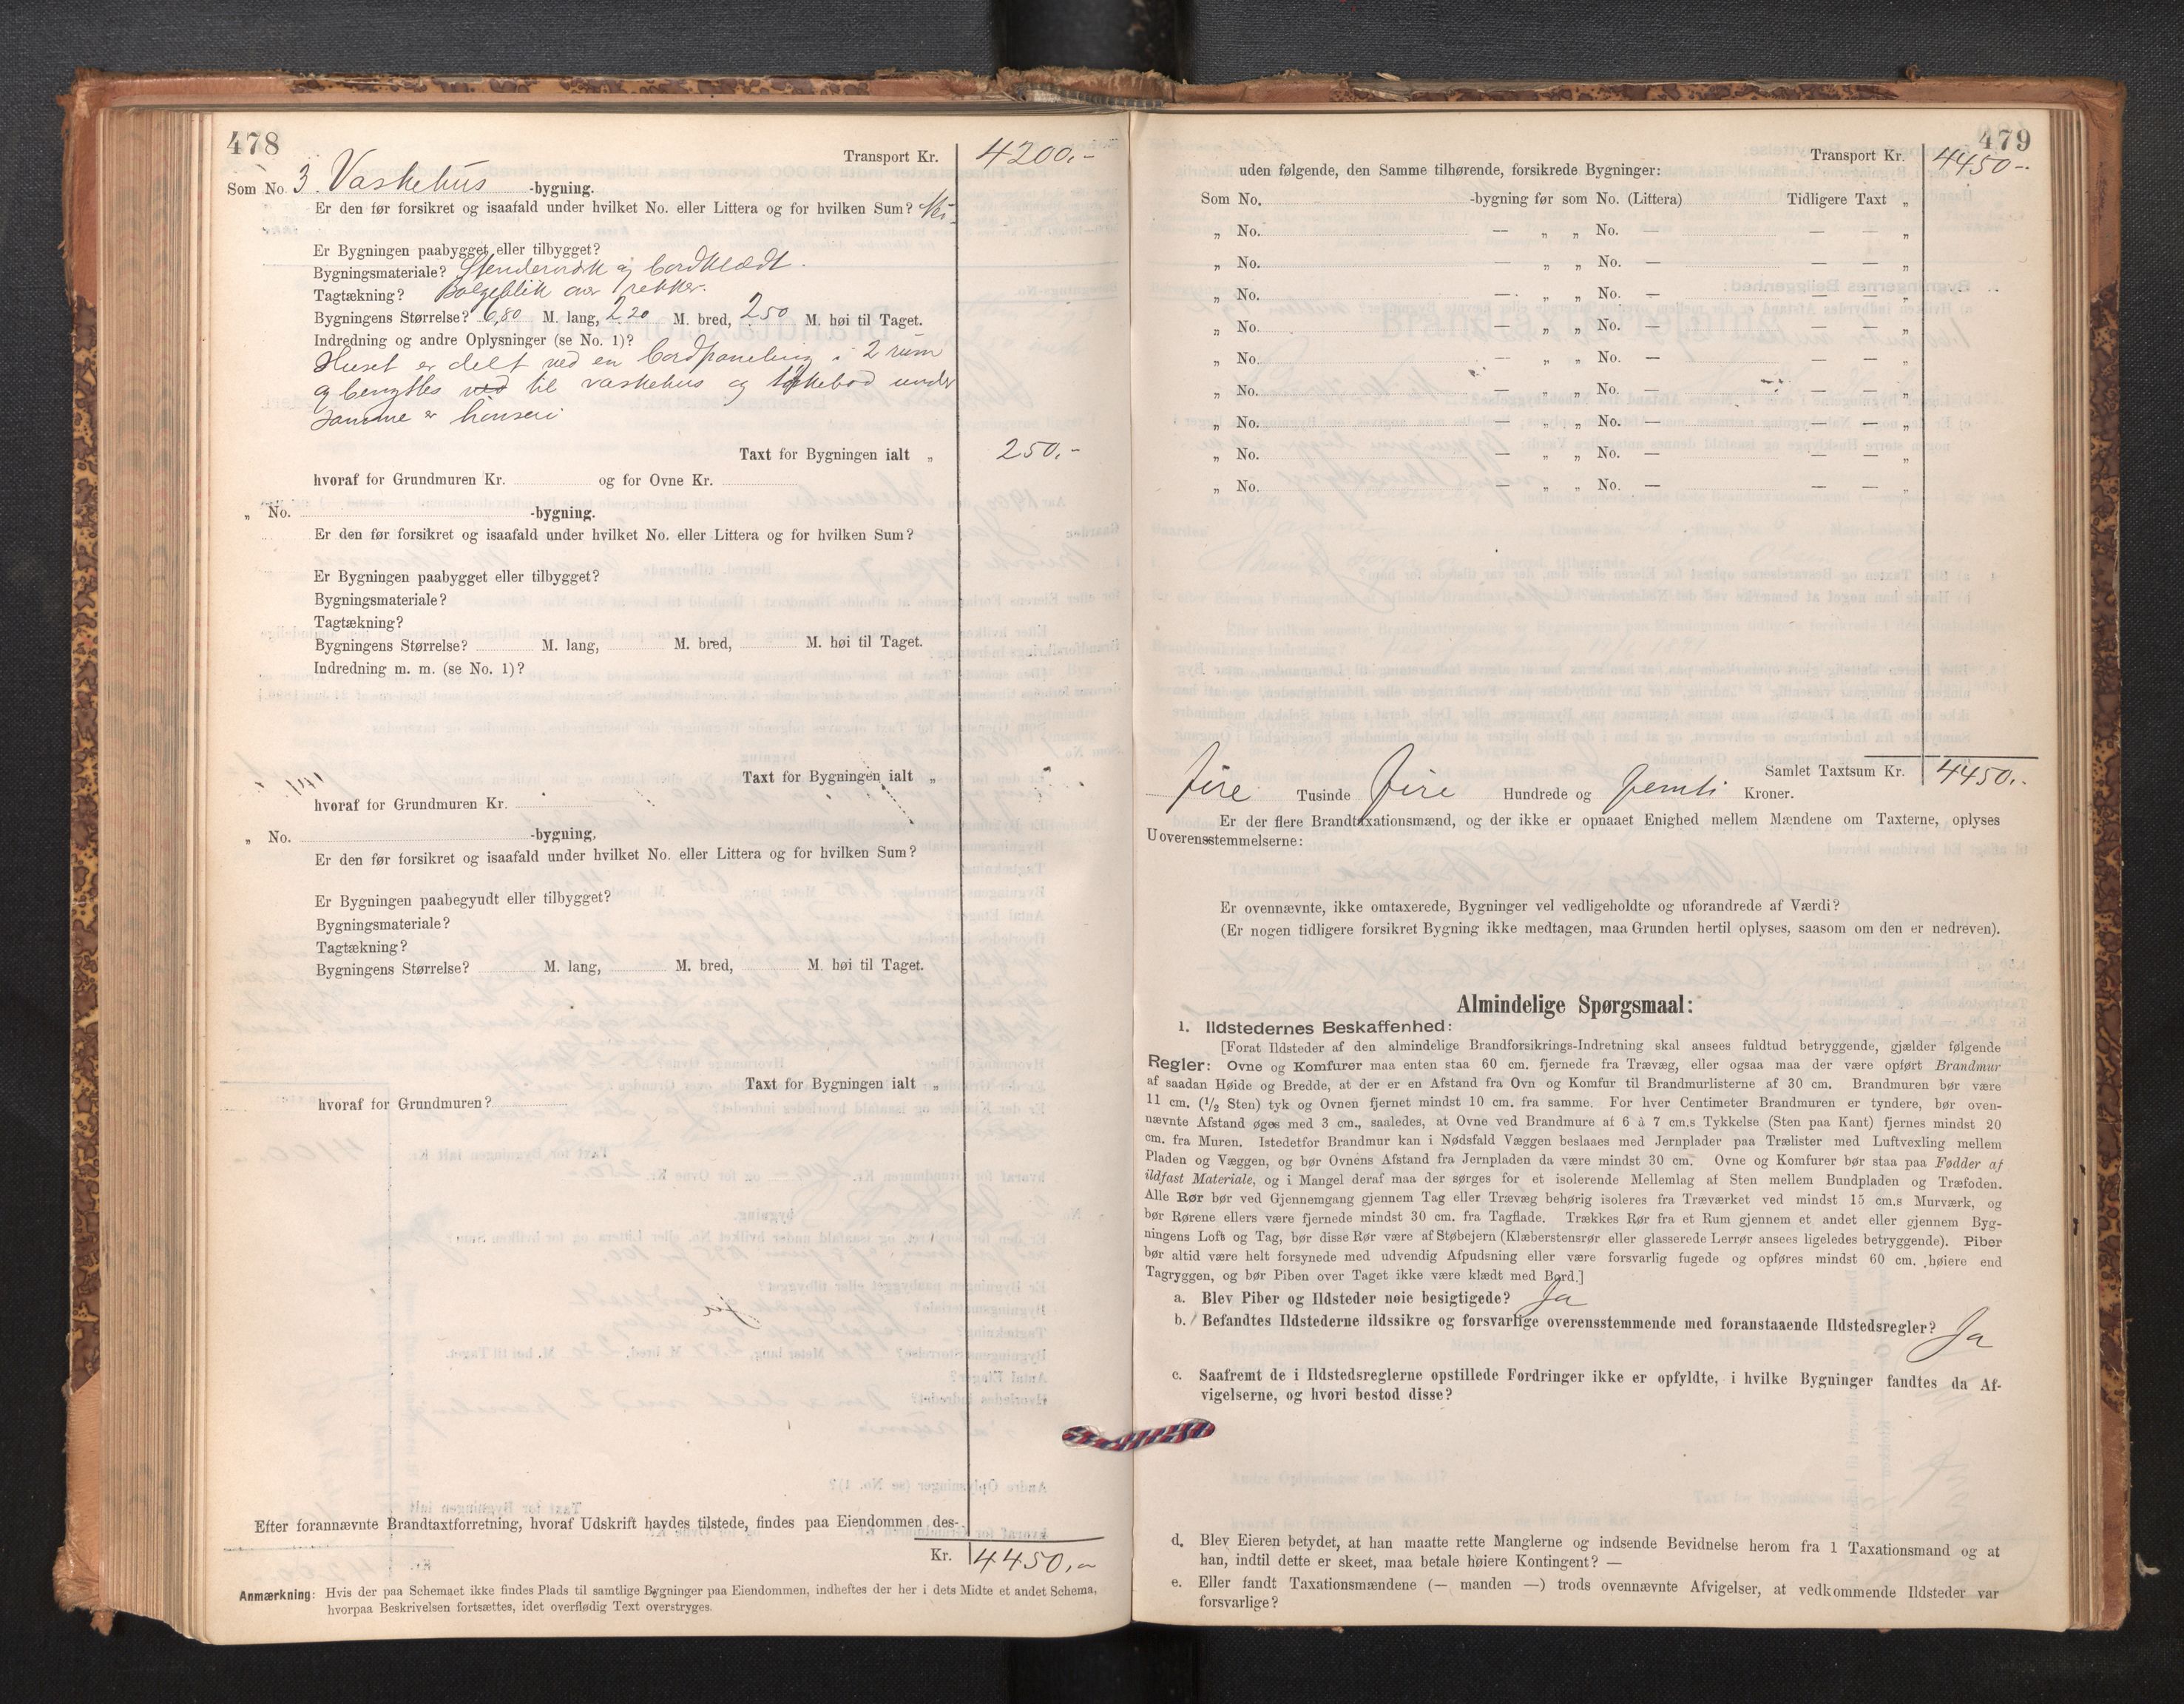 478
Transport Kr. 4200.-
Som No. 3. Vaskehus -bygning.
Er den før forsikret og isaafald under hvilket No. eller Littera og for hvilken Sum?
Er Bygningen paabygget eller tilbygget?
Bygningsmateriale? Stenderverk og bordklædt.
Tagtækning? Bølgeblik over rekker.
Bygningens Størrelse? 6,80 M. lang, 2 20 M. bred, 2 50 M. høi til Taget.
Indredning og andre Oplysninger (se No. 1)?
Huset er delt ved en bordpaneling i 2 rum
og benyttes ved til vaskehus og under
samme er hönseri
Taxt for Bygningen ialt „ 250.-
hvoraf for Grundmuren Kr. og for Ovne Kr.
„ No. -bygning.
Er den før forsikret og isaafald under hvilket No. eller Littera og for hvilken Sum?
Er Bygningen paabygget eller tilbygget?
Bygningsmateriale?
Tagtækning?
Bygningens Størrelse? M. lang, M. bred, M. høi til Taget.
Indredning m. m. (se No. 1)?
Taxt for Bygningen ialt „
hvoraf for Grundmuren Kr.
„ No. -bygning,
Er den før forsikret og isaafald under hvilket No. eller Littera og for hvilken Sum?
Er Bygningen paabegyudt eller tilbygget?
Bygningsmateriale?
Tagtækning?
Bygningens Størrelse? M. lang, M. bred, M. høi til Taget.
Taxt for Bygningen ialt „
hvoraf for Grundmuren?
Efter forannævnte Brandtaxtforretning, hvoraf Udskrift havdes tilstede, findes paa Eiendommen des-
Kr. 4450.-
Anmærkning: Hvis der paa Schemaet ikke findes Plads til samtlige Bygninger paa Eiendommen, indheftes der her i dets Midte et andet Schema,
hvorpaa Beskrivelsen fortsættes, idet overflødig Text overstryges.
479
Transport Kr. 4450-.
uden følgende, den Samme tilhørende, forsikrede Bygninger:
Som No. -bygning før som No. (Littera) Tidligere Taxt „
„ No. — „ „ No. — — — „
„ No. — „ „ No. — — — „
„ No. — „ „ No. — — — „
„ No. — „ „ No. — — — „
„ No. — „ „ No. — — — „
„ No. — „ „ No. — — — „
„ No. — „ „ No. — — — „
„ No. — „ „ No. — — — „
„ No. — „ „ No. — — — „
Samlet Taxtsum Kr. 4450..
fire Tusinde fire Hundrede og femti Kroner.
Er der flere Brandtaxationsmænd, og der ikke er opnaaet Enighed mellem Mændene om Taxterne, oplyses
Uoverensstemmelserne:
Er ovennævnte, ikke omtaxerede, Bygninger vel vedligeholdte og uforandrede af Værdi?
(Er nogen tidligere forsikret Bygning ikke medtagen, maa Grunden hertil oplyses, saasom om den er nedreven).
Almindelige Spørgsmaal:
1. Ildstedernes Beskaffenhed:
[Forat Ildsteder af den almindelige Brandforsikrings-Indretning skal ansees fuldtud betryggende, gjælder følgende
Regler: Ovne og Komfurer maa enten staa 60 cm. fjernede fra Trævæg, eller ogsaa maa der være opført Brandmur
af saadan Høide og Bredde, at der er en Afstand fra Ovn og Komfur til Brandmurlisterne af 30 cm. Brandmuren bør være
11 cm. (1/2 Sten) tyk og Ovnen fjernet mindst 10 cm. fra samme. For hver Centimeter Brandmuren er tyndere, bør oven-
nævnte Afstand øges med 3 cm., saaledes, at Ovne ved Brandmure af 6 à 7 cm.s Tykkelse (Sten paa Kant) fjernes mindst 20
cm. fra Muren. Istedetfor Brandmur kan i Nødsfald Væggen beslaaes med Jernplader paa Trælister med Luftvexling mellem
Pladen og Væggen, og bør Ovnens Afstand fra Jernpladen da være mindst 30 cm. Ovne og Komfurer bør staa paa Fødder af
ildfast Materiale, og i Mangel deraf maa der sørges for et isolerende Mellemlag af Sten mellem Bundpladen og Træfoden.
Alle Rør bør ved Gjennemgang gjennem Tag eller Trævæg behørig isoleres fra Træværket ved mindst 15 cm.s Murværk, og
bør Rørene ellers være fjernede mindst 30 cm. fra Tagflade. Trækkes Rør fra et Rum gjennem et andet eller gjennem Byg-
ningens Loft og Tag, bør disse Rør være af Støbejern (Klæberstensrør eller glasserede Lerrør ansees ligeledes betryggende). Piber
bør altid være helt forsynede med udvendig Afpudsning eller være forsvarlig fugede og opføres mindst 60 cm. høiere end
Tagryggen, og bør Piben over Taget ikke være klædt med Bord.]
a. Blev Piber og Ildsteder nøie besigtigede? Ja
b. Befandtes Ildstederne ildssikre og forsvarlige overensstemmende med foranstaaende Ildstedsregler? Ja
c. Saafremt de i Ildstedsreglerne opstillede Fordringer ikke er opfyldte, i hvilke Bygninger fandtes da Af-
vigelserne, og hvori bestod disse?
d. Blev Eieren betydet, at han maatte rette Manglerne og indsende Bevidnelse herom fra 1 Taxationsmand og at
han, indtil dette er skeet, maa betale høiere Kontingent? —
e. Eller fandt Taxationsmændene (— manden —) trods ovennævnte Afvigelser, at vedkommende Ildsteder var
forsvarlige?